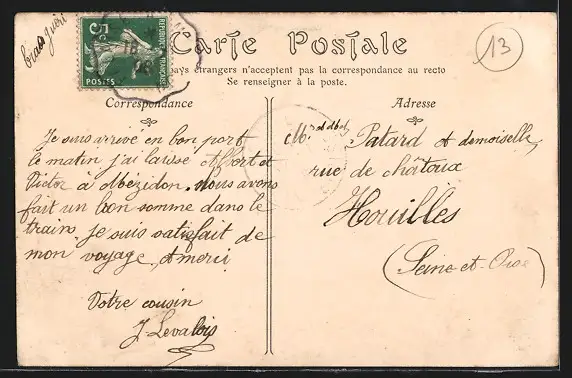 13
5c
REPUBLIQUE FRANÇAISE
POSTES
Carte Postale
pays étrangers n'acceptent pas la correspondance au recto
Se renseigner à la poste.
Correspondance
Je suis arrivé en bon port
le matin j'ai laissé Albert et
Victor à Mézidon. Nous avons
fait un bon somme dans le
train, je suis satisfait de
mon voyage, et merci
Votre cousin
J. Levalois
Adresse
Mr et Mde Patard et demoiselle,
rue de châtoux
Houilles
(Seine-et-Oise)